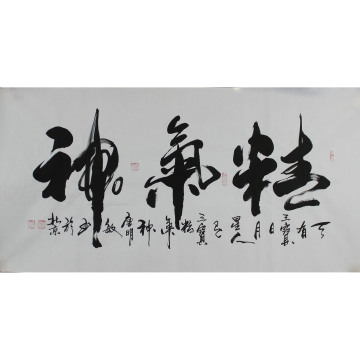 精氣神
天有三寶日月星人有三寶精氣神 明敏书於北京